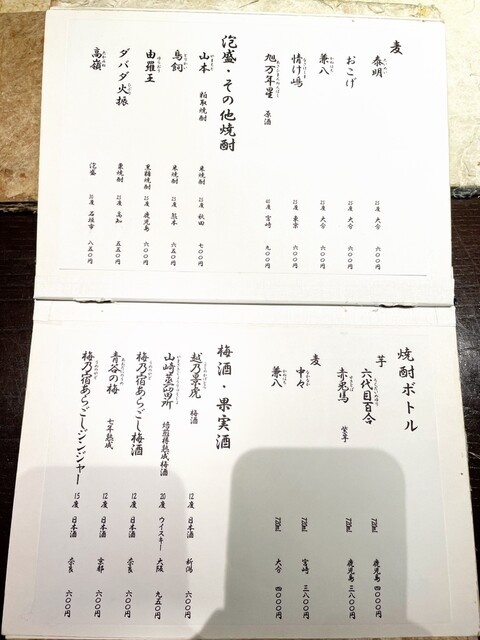 麦
泰明 25度 大分 六〇〇円
おこげ 25度 大分 六〇〇円
兼八 25度 大分 六〇〇円
情け嶋 25度 東京 六〇〇円
旭万年星 原酒 宮崎 九〇〇円
泡盛・その他焼酎
山本 粕取焼酎 米焼酎 25度 秋田 七〇〇円
鳥飼 米焼酎 25度 熊本 六五〇円
由羅王 黒糖焼酎 25度 鹿児島 六〇〇円
ダバダ火振 栗焼酎 25度 高知 五五〇円
高嶺 泡盛 30度 石垣市 八五〇円
焼酎ボトル
芋
六代目百合 720ml 鹿児島 四〇〇〇円
赤兎馬 紫芋 720ml 鹿児島 三八〇〇円
麦
中々 720ml 宮崎 三八〇〇円
兼八 720ml 大分 四〇〇〇円
梅酒・果実酒
越乃景虎 梅酒 12度 日本酒 新潟 六〇〇円
山崎蒸留所 焙煎樽熟成梅酒 20度 ウイスキー 大阪 九五〇円
梅乃宿あらごし梅酒 12度 日本酒 奈良 六〇〇円
青谷の梅 七年熟成 12度 日本酒 京都 六〇〇円
梅乃宿あらごしジンジャー 15度 日本酒 奈良 六〇〇円